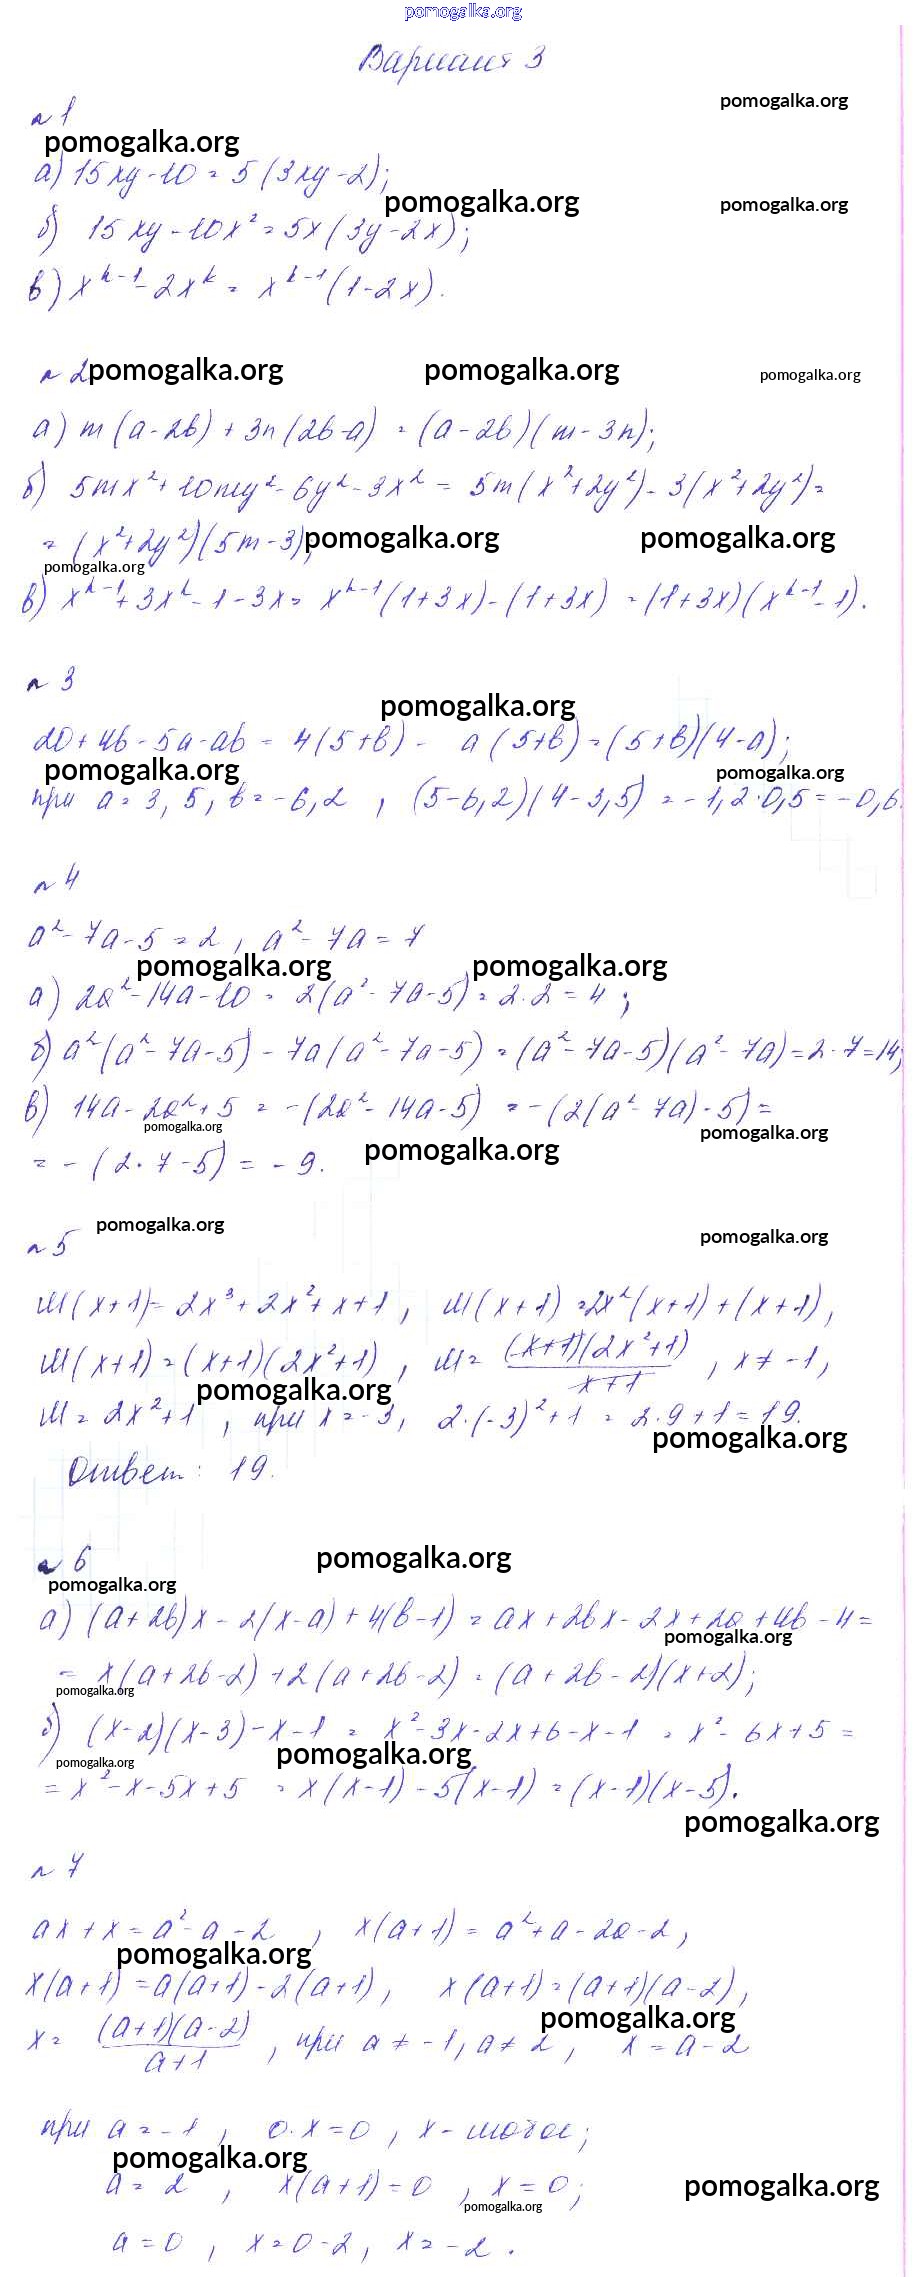 pomogalka.org
Вариант 3
pomogalka.org
№ 1
pomogalka.org
а) 15xy - 10 = 5 (3xy - 2);
pomogalka.org pomogalka.org
б) 15xy - 10x² = 5x (3y - 2x);
в) x^(k-1) - 2x^k = x^(k-1) (1 - 2x).
№ 2 pomogalka.org pomogalka.org pomogalka.org
а) m (a - 2b) + 3n (2b - a) = (a - 2b) (m - 3n);
б) 5mx² + 10my² - 6y² - 3x² = 5m (x² + 2y²) - 3 (x² + 2y²) =
= (x² + 2y²) (5m - 3); pomogalka.org pomogalka.org
pomogalka.org
в) x^(k-1) + 3x^k - 1 - 3x = x^(k-1) (1 + 3x) - (1 + 3x) = (1 + 3x) (x^(k-1) - 1).
№ 3
pomogalka.org
20 + 4b - 5a - ab = 4 (5 + b) - a (5 + b) = (5 + b) (4 - a);
pomogalka.org pomogalka.org
при a = 3,5, b = -6,2, (5 - 6,2) (4 - 3,5) = -1,2 · 0,5 = -0,6.
№ 4
a² - 7a - 5 = 2, a² - 7a = 7
pomogalka.org pomogalka.org
а) 2a² - 14a - 10 = 2 (a² - 7a - 5) = 2 · 2 = 4;
б) a² (a² - 7a - 5) - 7a (a² - 7a - 5) = (a² - 7a - 5) (a² - 7a) = 2 · 7 = 14;
в) 14a - 2a² + 5 = -(2a² - 14a - 5) = -(2 (a² - 7a) - 5) =
pomogalka.org pomogalka.org
= -(2 · 7 - 5) = -9. pomogalka.org
pomogalka.org
№ 5 pomogalka.org
Ш (x + 1) = 2x³ + 2x² + x + 1, Ш (x + 1) = 2x² (x + 1) + (x + 1),
Ш (x + 1) = (x + 1) (2x² + 1), Ш = (x + 1)(2x² + 1) / x + 1, x ≠ -1,
pomogalka.org
Ш = 2x² + 1, при x = -3, 2 · (-3)² + 1 = 2 · 9 + 1 = 19.
pomogalka.org
Ответ: 19.
№ 6 pomogalka.org
pomogalka.org
а) (a + 2b) x - 2 (x - a) + 4 (b - 1) = ax + 2bx - 2x + 2a + 4b - 4 =
pomogalka.org
= x (a + 2b - 2) + 2 (a + 2b - 2) = (a + 2b - 2) (x + 2);
pomogalka.org
б) (x - 2) (x - 3) - x - 1 = x² - 3x - 2x + 6 - x - 1 = x² - 6x + 5 =
pomogalka.org pomogalka.org
= x² - x - 5x + 5 = x (x - 1) - 5 (x - 1) = (x - 1) (x - 5).
pomogalka.org
№ 7
ax + x = a² - a - 2, x (a + 1) = a² + a - 2a - 2,
pomogalka.org
x (a + 1) = a (a + 1) - 2 (a + 1), x (a + 1) = (a + 1) (a - 2),
pomogalka.org
x = (a + 1)(a - 2) / a + 1, при a ≠ -1, a ≠ 2, x = a - 2
при a = -1, 0 · x = 0, x -
pomogalka.org
a = 2, x (a + 1) = 0, x = 0; pomogalka.org
pomogalka.org
a = 0, x = 0 - 2, x = -2.